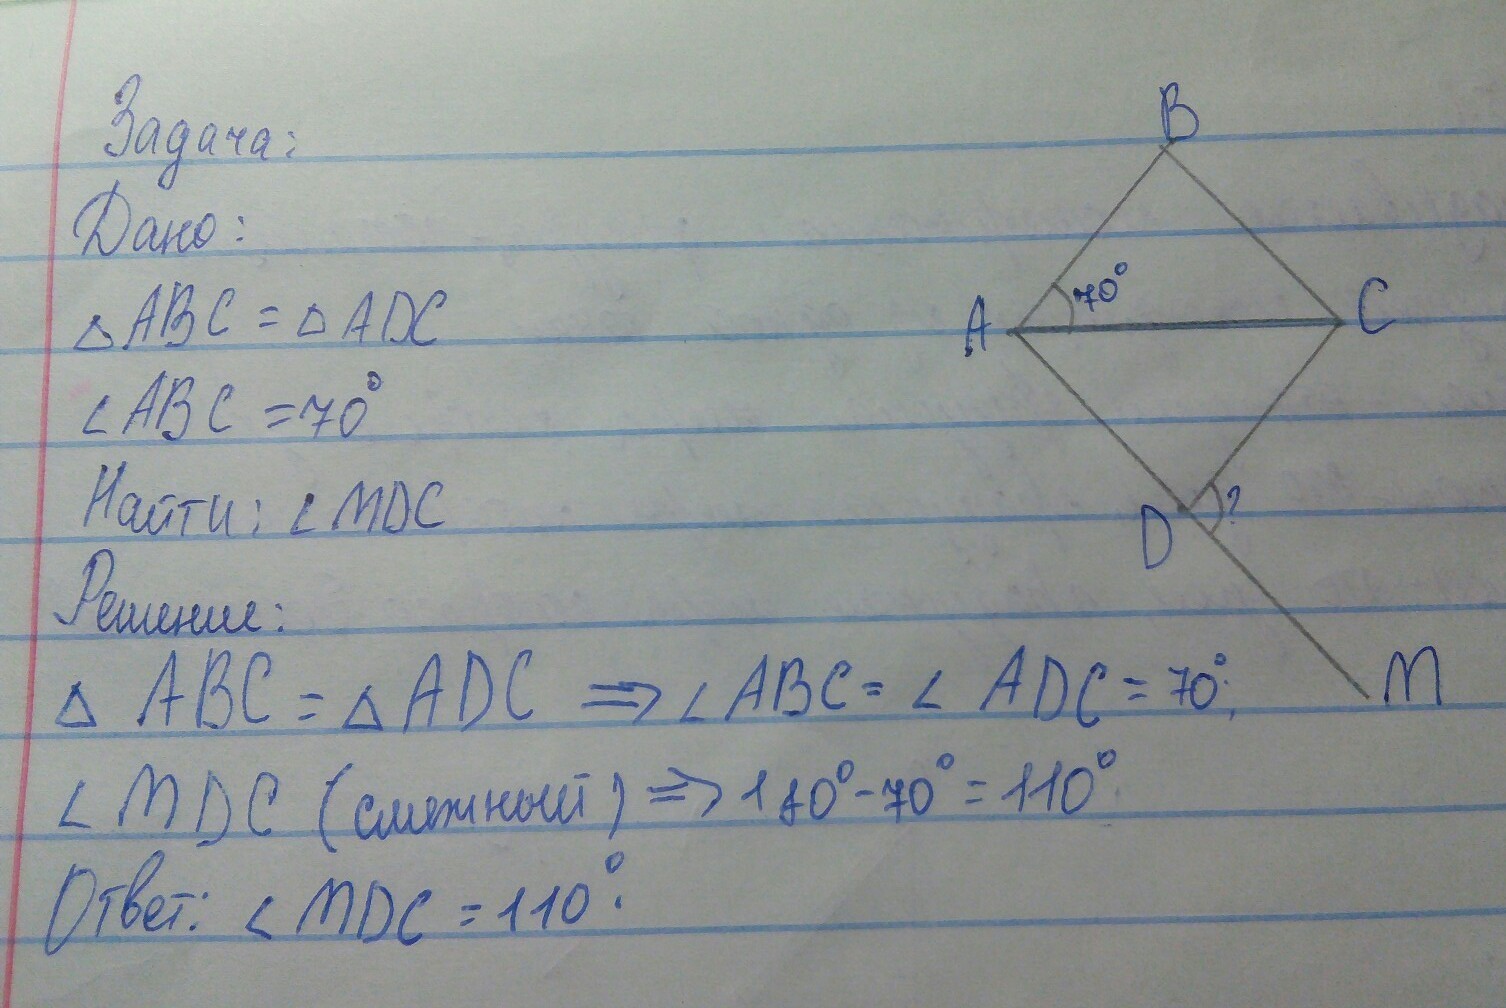 Задача:
Дано:
△ABC = △ADC
∠ABC = 70°
Найти: ∠MDC
Решение:
△ ABC = △ADC ⟹ ∠ABC = ∠ ADC = 70°;
∠MDC (смежный) ⟹ 180° - 70° = 110°.
Ответ: ∠MDC = 110°.
B
70°
A
C
D
?
M